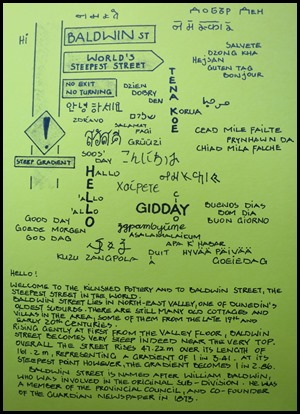 ДОБЪР ДЕН
Hi
BALDWIN ST
WORLD'S
STEEPEST STREET
NO EXIT
NO TURNING
STEEP GRADIENT
SALVETE
DZONG KHA
HEJSAN
GUTEN TAG
BONJOUR
TENA KOE
KORUA
DZIEN
DOBRY
DEN
안녕하세요
ZDRAVO
שלום
SALAMAT
PAGI
GRÜEZI
CEAD MILE FAILTE
PRYNHAWN DA
CHIAD MILA FAILCHE
GOOS'
DAY
HALLO
'ALLO
'ALLO
HELLO
こんにちは
Χαίρετε
CIAO
GIDDAY
BUENOS DIAS
BOM DIA
BUON GIORNO
GOOD DAY
GOEDE MORGEN
GOD DAG
здравствуйте
ASALAIMALAIKUM
APA K' HABAR
KUZU ZANGPOLA
DUIT
HYVÄÄ PÄIVÄÄ
GOEIEDAG
HELLO!
WELCOME TO THE KILNSHED POTTERY AND TO BALDWIN STREET, THE
STEEPEST STREET IN THE WORLD.
BALDWIN STREET LIES IN NORTH-EAST VALLEY, ONE OF DUNEDIN'S
OLDEST SUBURBS. THERE ARE STILL MANY OLD COTTAGES AND
VILLAS IN THE AREA, SOME OF THEM FROM THE LATE 19TH AND
EARLY 20TH CENTURIES.
RISING GENTLY AT FIRST FROM THE VALLEY FLOOR, BALDWIN
STREET BECOMES VERY STEEP INDEED NEAR THE VERY TOP.
OVERALL THE STREET RISES 47.2 m OVER ITS LENGTH OF
161.2 m, REPRESENTING A GRADIENT OF 1 IN 3.41. AT ITS
STEEPEST POINT HOWEVER, THE GRADIENT BECOMES 1 IN 2.86.
BALDWIN STREET IS NAMED AFTER WILLIAM BALDWIN,
WHO WAS INVOLVED IN THE ORIGINAL SUB-DIVISION. HE WAS
A MEMBER OF THE PROVINCIAL COUNCIL, AND CO-FOUNDER
OF THE GUARDIAN NEWSPAPER IN 1873.